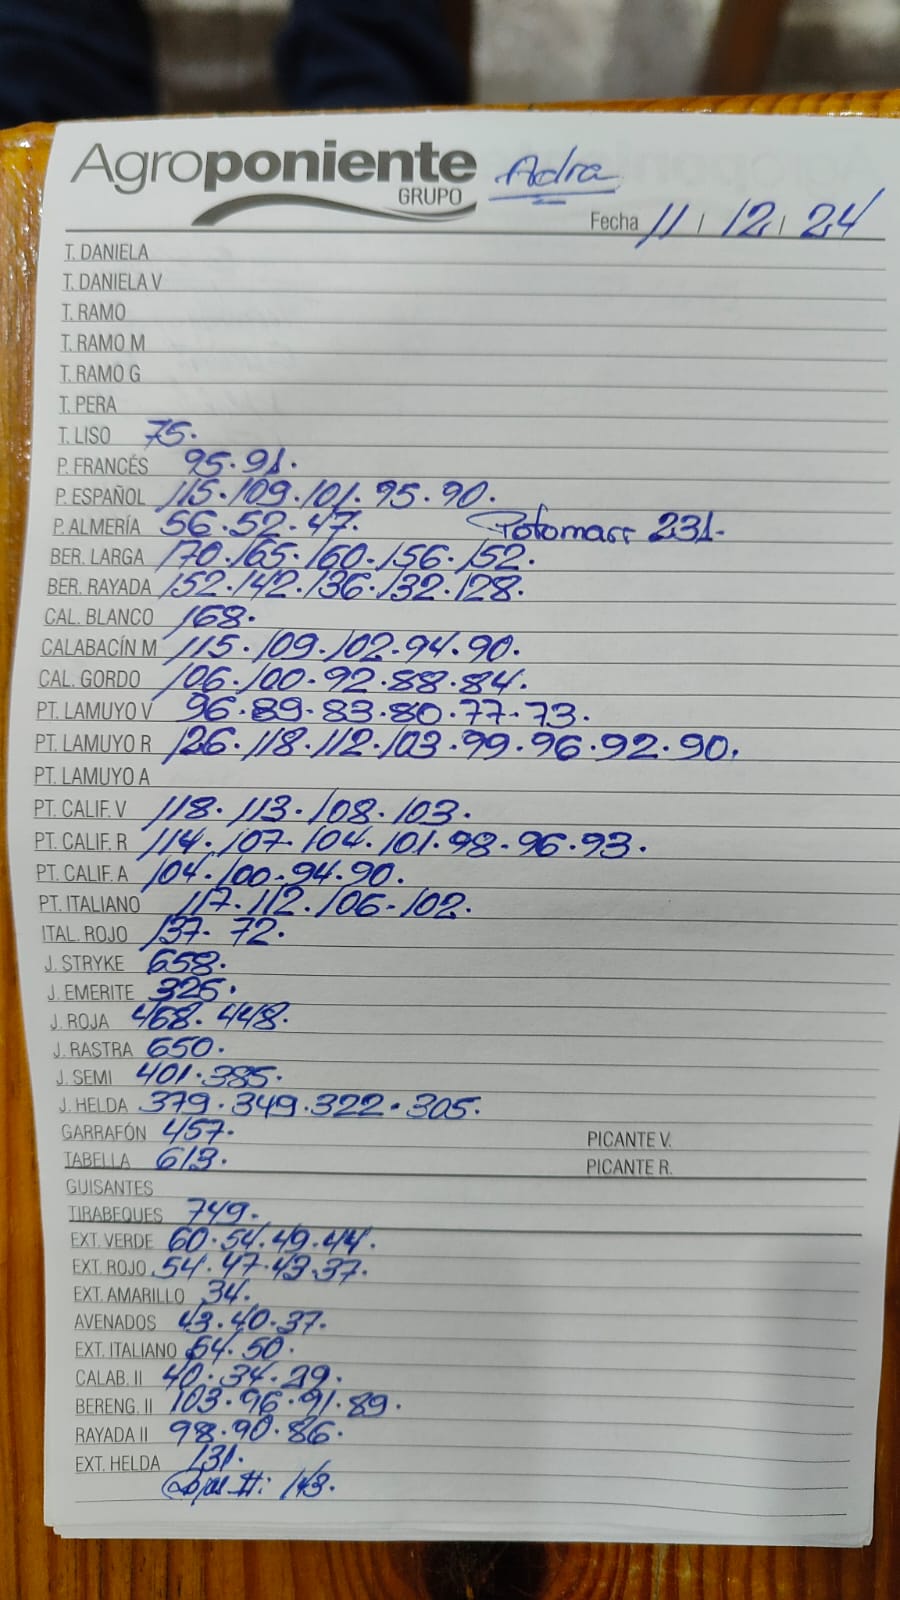 Agroponiente
GRUPO
Adra
Fecha 11 / 12 / 24
T. DANIELA
T. DANIELA V
T. RAMO
T. RAMO M
T. RAMO G
T. PERA
T. LISO 75.
P. FRANCÉS 95.91.
P. ESPAÑOL 115.109.101.95.90.
P. ALMERÍA 56.52.47. Potomarr 231.
BER. LARGA 170.165.160.156.152.
BER. RAYADA 152.142.136.132.128.
CAL. BLANCO 168.
CALABACÍN M 115.109.102.94.90.
CAL. GORDO 106.100.92.88.84.
PT. LAMUYO V 96.89.83.80.77.73.
PT. LAMUYO R 126.118.112.103.99.96.92.90.
PT. LAMUYO A
PT. CALIF. V 118.113.108.103.
PT. CALIF. R 114.107.104.101.98.96.93.
PT. CALIF. A 104.100.94.90.
PT. ITALIANO 117.112.106.102.
ITAL. ROJO 137. 72.
J. STRYKE 658.
J. EMERITE 326.
J. ROJA 468.448.
J. RASTRA 650.
J. SEMI 401.385.
J. HELDA 379.349.322.305.
GARRAFÓN 457. PICANTE V.
TABELLA 613. PICANTE R.
GUISANTES
TIRABEQUES 749.
EXT. VERDE 60.54.49.44.
EXT. ROJO 54.47.43.37.
EXT. AMARILLO 34.
AVENADOS 43.40.37.
EXT. ITALIANO 54.50.
CALAB. II 40.34.29.
BERENG. II 103.96.91.89.
RAYADA II 98.90.86.
EXT. HELDA 131.
II: 143.